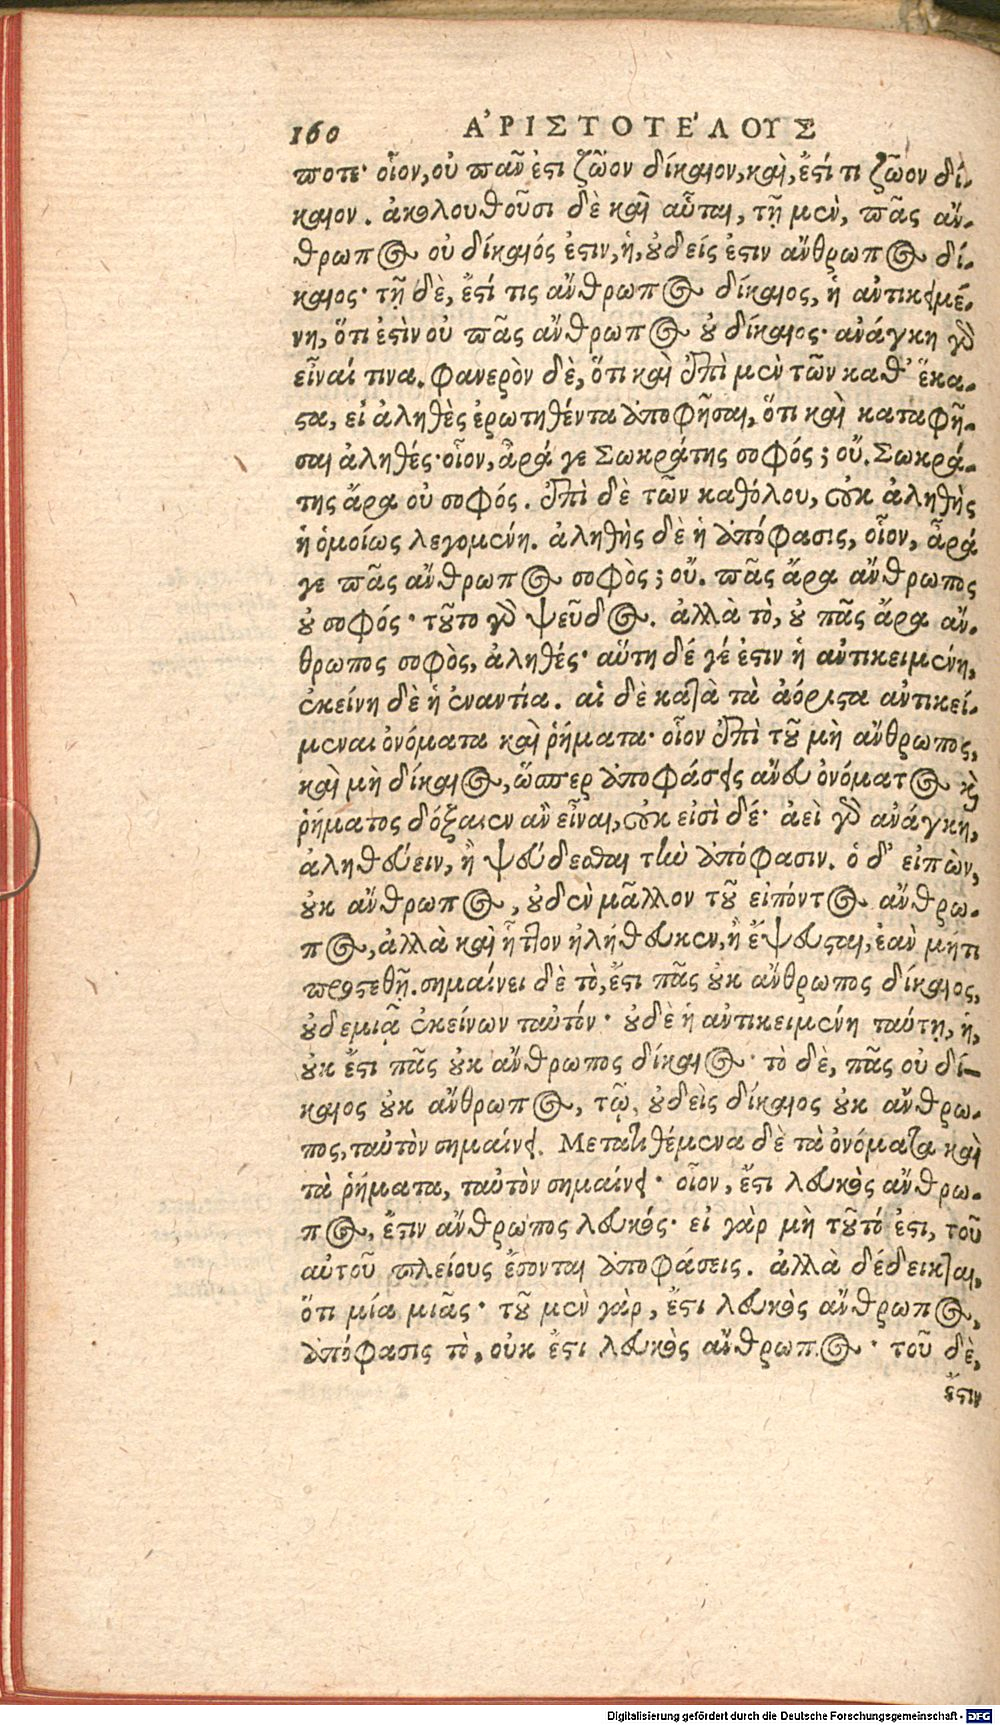 160 ἈΡΙΣΤΟΤΈΛΟΥΣ
ποτε· οἷον, οὐ πᾶν ἐστι ζῶον δίκαιον, καὶ, ἔστί τι ζῶον δί-
καιον. ἀκολουθοῦσι δὲ καὶ αὗται, τῇ μὲν, πᾶς ἄν-
θρωπος οὐ δίκαιός ἐστιν, ἡ, οὐδείς ἐστιν ἄνθρωπος δί-
καιος· τῇ δὲ, ἔστί τις ἄνθρωπος δίκαιος, ἡ ἀντικειμέ-
νη, ὅτι ἐστὶν οὐ πᾶς ἄνθρωπος οὐ δίκαιος· ἀνάγκη γὰρ
εἶναί τινα. Φανερὸν δὲ, ὅτι καὶ ἐπὶ μὲν τῶν καθ’ ἕκα-
στα, εἰ ἀληθὲς ἐρωτηθέντα ἀποφῆσαι, ὅτι καὶ καταφῆ-
σαι ἀληθές· οἷον, ἆρά γε Σωκράτης σοφός; οὔ. Σωκρά-
της ἄρα οὐ σοφός. ἐπὶ δὲ τῶν καθόλου, οὐκ ἀληθὴς
ἡ ὁμοίως λεγομένη. ἀληθὴς δὲ ἡ ἀπόφασις, οἷον, ἆρά
γε πᾶς ἄνθρωπος σοφὸς; οὔ. πᾶς ἄρα ἄνθρωπος
οὐ σοφός· τοῦτο γὰρ ψεῦδος. ἀλλὰ τὸ, οὐ πᾶς ἄρα ἄν-
θρωπος σοφὸς, ἀληθές· αὕτη δέ γέ ἐστιν ἡ ἀντικειμένη,
ἐκείνη δὲ ἡ ἐναντία. αἱ δὲ κατὰ τὰ ἀόριστα ἀντικεί-
μεναι ὀνόματα καὶ ῥήματα· οἷον ἐπὶ τοῦ μὴ ἄνθρωπος,
καὶ μὴ δίκαιος, ὥσπερ ἀποφάσεις ἄνευ ὀνόματος καὶ
ῥήματος δόξαιεν ἂν εἶναι, οὐκ εἰσὶ δέ· ἀεὶ γὰρ ἀνάγκη,
ἀληθεύειν, ἢ ψεύδεσθαι τὴν ἀπόφασιν. ὁ δ’ εἰπὼν,
οὐκ ἄνθρωπος, οὐδὲν μᾶλλον τοῦ εἰπόντος ἄνθρω-
πος, ἀλλὰ καὶ ἧττον ἠλήθευκεν, ἢ ἔψευσται, ἐὰν μή τι
προστεθῇ. σημαίνει δὲ τὸ, ἔστι πᾶς οὐκ ἄνθρωπος δίκαιος,
οὐδεμιᾷ ἐκείνων ταὐτόν· οὐδὲ ἡ ἀντικειμένη ταύτῃ, ἡ,
οὐκ ἔστι πᾶς οὐκ ἄνθρωπος δίκαιος· τὸ δὲ, πᾶς οὐ δί-
καιος οὐκ ἄνθρωπος, τῷ, οὐδεὶς δίκαιος οὐκ ἄνθρω-
πος, ταὐτὸν σημαίνει. Μετατιθέμενα δὲ τὰ ὀνόματα καὶ
τὰ ῥήματα, ταὐτὸν σημαίνει· οἷον, ἔστι λευκὸς ἄνθρω-
πος, ἔστιν ἄνθρωπος λευκός· εἰ γὰρ μὴ τοῦτό ἐστι, τοῦ
αὐτοῦ πλείους ἔσονται ἀποφάσεις. ἀλλὰ δέδεικται,
ὅτι μία μιᾶς· τοῦ μὲν γὰρ, ἔστι λευκὸς ἄνθρωπος,
ἀπόφασις τὸ, οὐκ ἔστι λευκὸς ἄνθρωπος· τοῦ δὲ,
ἔστιν
Digitalisierung gefördert durch die Deutsche Forschungsgemeinschaft - DFG